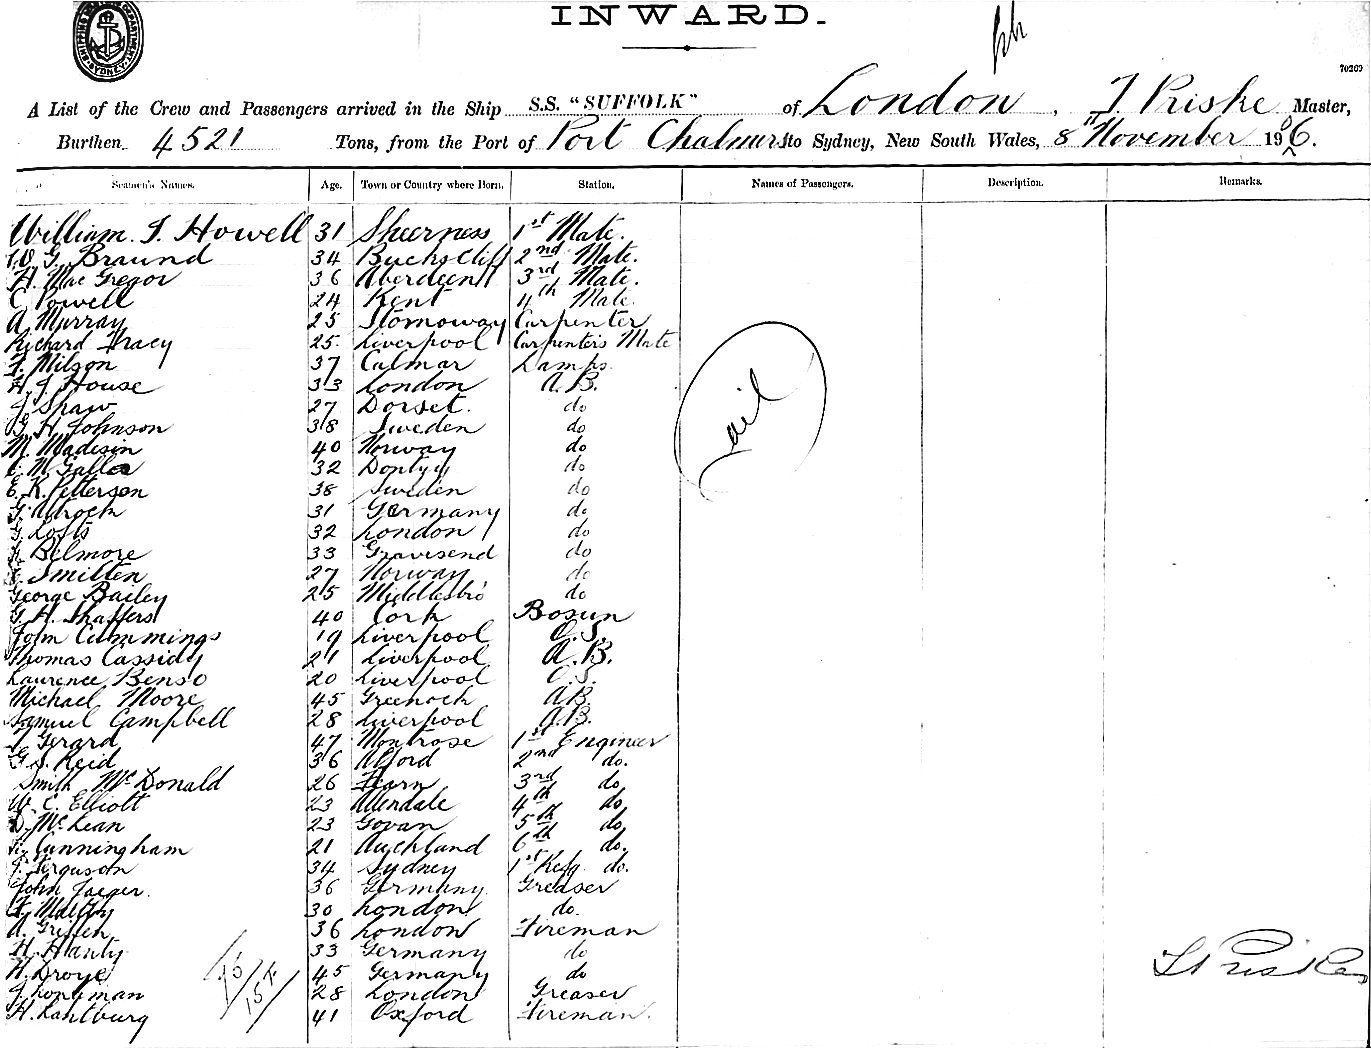 SHIPPING DEPARTMENT SYDNEY
INWARD.
70209
A List of the Crew and Passengers arrived in the Ship S.S. "SUFFOLK" of London, J Priske Master,
Burthen 4521 Tons, from the Port of Port Chalmers to Sydney, New South Wales, 8" November 1906.
Seamen's Names. Age. Town or Country where Born. Station. Names of Passengers. Description. Remarks.
William. J. Howell 31 Sheerness 1st Mate.
G. Braund 34 2nd Mate.
H. Mac Gregor 36 Aberdeen 3rd Mate.
C Powell 24 Kent 4th Mate
A Murray 25 Stornoway Carpenter
Richard Tracy 25 Liverpool Carpenters Mate
F. Milson 37 Calmar Lamps
H J House 33 London A.B.
J Shaw 27 Dorset. do
G H Johnson 38 Sweden do
M. Madisin 40 Norway do
32 do
E. K. Petterson 38 Sweden do
31 Germany do
G. Lofts 32 London do
Belmore 33 Gravesend do
Smitten 27 Norway do
George Bailey 25 Middlesbro do
G. H. Shaffers 40 Cork Bosun
John Cummings 19 Liverpool O.S.
Thomas Cassidy 21 Liverpool A.B.
Laurence Benso 20 Liverpool O.S.
Michael Moore 45 Greenock A.B.
Samuel Campbell 28 Liverpool A.B.
Gerard 47 Montrose 1st Engineer
G. S. Reid 36 Alford 2nd do.
Smith McDonald 26 Fearn 3rd do
W. C. Elliott 23 Allendale 4th do
D. McLean 23 Govan 5th do
Cunningham 21 Auckland 6th do.
J. Ferguson 34 Sydney 1st Refg. do.
John Jaeger. 36 Germany Greaser
F. Maltby 30 London do.
A. 36 London Fireman
H. Hanty 33 Germany do
H. Droye 45 Germany do
J. Longman 28 London Greaser
H. Lantburg 41 Oxford Fireman.